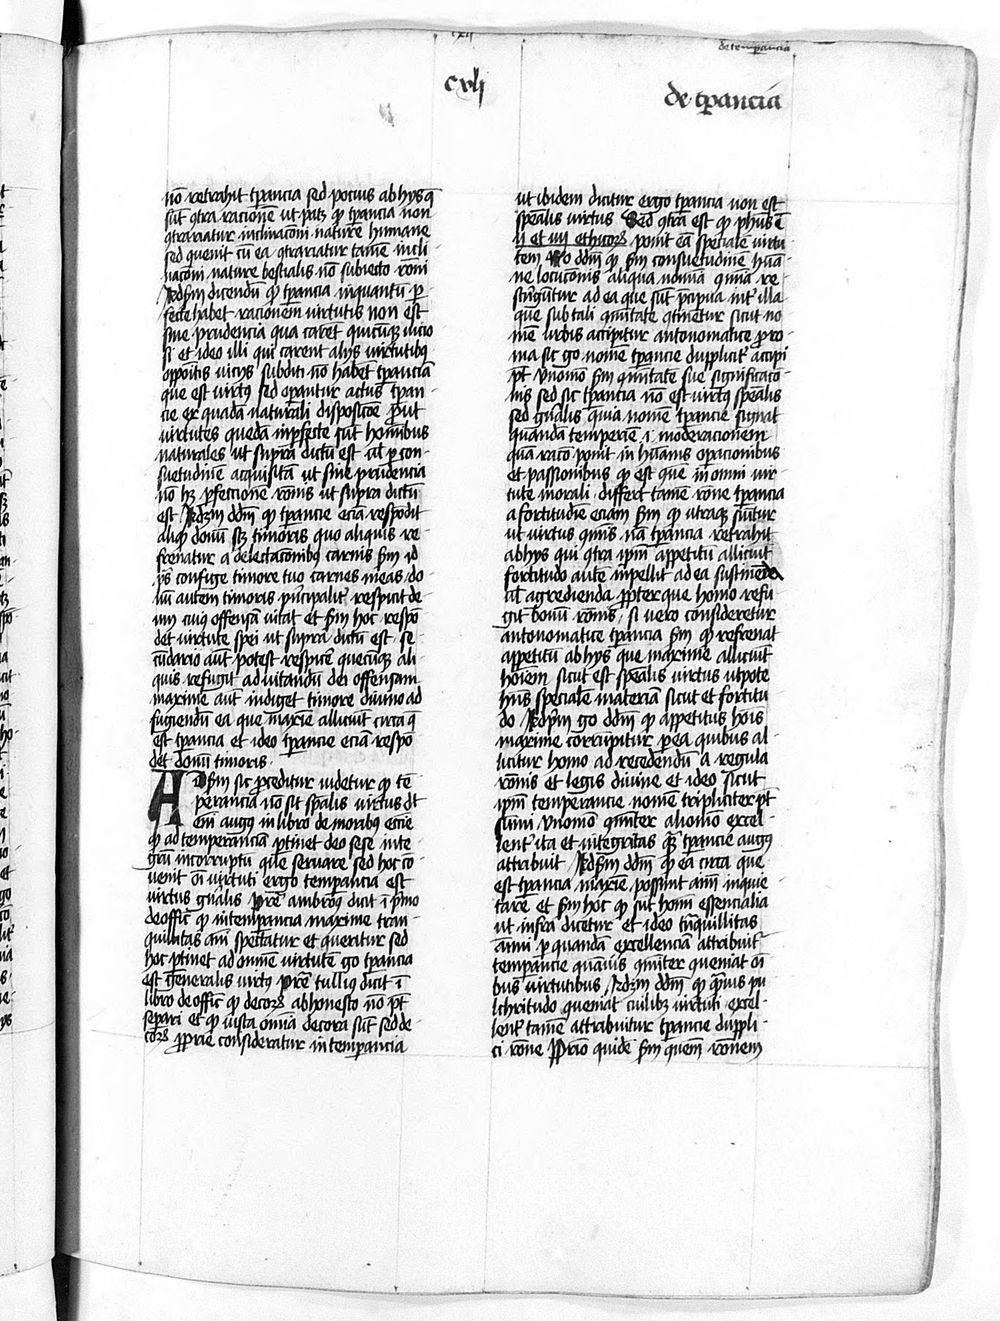 de temperancia
cxlj
de tp̄ancia
nō retrahit tp̄ancia sed pocius ab hys q̄
sūt ꝯtra racionē ut patꝫ ꝙ tp̄ancia non
ꝯtrariatur inclinacōni nature humane
sed ꝯuenit cū ea ꝯtrariatur tamē incli
nacōni nature bestialis nō subiecto rōni
Ad ẜm dicendū ꝙ tp̄ancia inquantū ꝑ
fecte habet racionem virtutis non est
sine prudencia qua caret quicūqꝫ vicio
sꝰ et ideo illi qui carent alys virtutibꝰ
oppōitis vicys subditi nō habēt tp̄anciā
que est virtꝰ sed oꝑantur actus tp̄an
cie ex quadā naturali disposicōe ꝓut
virtutes quedā inꝑfecte sūt hoībus
naturales ut supra dictū est ul̄ ꝑ con
suetudinē acquisitā ut sine prudencia
nō hꝫ ꝑfectionē rōnis ut supra dictū
est Ad 3m dd̄m ꝙ tp̄ancie eciā respōdit
aliqḋ donū scꝫ timoris quo aliquis re
frenatur a delectacōnibus carnis ẜm id
pͤs confige timore tuo carnes meas do
nū autem timoris pīcipalitͬ respicit de
um cuiꝰ offensā vitat et ẜm hoc respō
det virtute spei ut supra dictū est se
cūdario aūt potest respicē quecūqꝫ ali
quis refugit ad vitandū dei offensam
maxime aūt indiget timore divino ad
fugiendū ea que maxīe alliciūt circa q̄
est tp̄ancia et ideo tp̄ancie eciā respō
det donū timoris
Ad ẜm sic ꝓceditur videtur ꝙ tē
perancia nō sit spālis virtus dt
enī augꝰ in libro de moribꝰ ecc̄ie
ꝙ ad temperanciā ꝑtinet deo sese inte
grū incorruptū qꝫ servare sed hoc cō
venit oī virtuti ergo tempancia est
virtus gn̄alis Pret̄ ambroꝰ dicit ī pͥmo
de offic̄ ꝙ in tempancia maxime tran
quillitas aīi spectatur et queritur sed
hoc ꝑtinet ad omnē virtutē go tp̄ancia
est generalis virtꝰ Pret̄ tulliꝰ dicit ī
libro de offic̄ ꝙ decorꝫ ab honesto nō pt̄
separi et ꝙ iusta om̄ia decora sūt sed de
corꝫ ꝓprie consideratur in tempancia
ut ibidem dicitur ergo tp̄ancia non est
spēalis virtus Sed ꝯtra est ꝙ phūs ī
ii et iiij ethicorꝫ ponit eā specialē virtu
tem Rō dd̄m ꝙ ẜm consuetudinē hūa
ne locucōnis aliqua nōīa cōīa re
strīgūtur ad ea que sūt p̄cipua intͬ illa
que sub tali cōītate ꝯtinētur sicut no
mē urbis accipitur antonomatice ꝓ ro
ma sic go nomē tp̄ancie duplicitͬ accipi
pt̄ Uno mō ẜm cōītatē sue significacō
nis sed sic tp̄ancia nō est virtꝰ spēalis
sed gn̄alis quia nomē tp̄ancie signat
quandā temperiē .i. moderacionem
quā racō ponit in hūanis oꝑacionibus
et passionibus ꝙ est cōe in omni vir
tute morali differt tamē rōne tp̄ancia
a fortitudīe eciam ẜm ꝙ utraqꝫ sūitur
ut virtus cōīs nā tp̄ancia retrahit
ab hys qui ꝯtra ip̄m appetitū alliciūt
fortitudo autē inpellit ad ea sustinēda
ul̄ agredienda ꝓpter que homo refu
git bonū rōnis Si vero consideretur
antonomatice tp̄ancia ẜm ꝙ refrenat
appetitū ab hys que maxime alliciūt
hoīem sicut est spēalis virtus utpote
hn̄s specialē materiā sicut et fortitu
do Ad pͥm go dd̄m ꝙ appetitus hoīs
maxime corrūpitur ꝑ ea quibus al
licitur homo ad recedendū a regula
rōnis et legis divine et ideo sicut
ip̄m temperancie nomē tripliciter pt̄
sumi Uno mō cōiter alio mō excel
lentͬ ita et integritas quā tp̄ancie augꝰ
attribuit Ad ẜm dd̄m ꝙ ea circa que
est tp̄ancia maxīe possunt aīm inquie
tare et ẜm hoc ꝙ sūt homī essencialia
ut infra dicetur et ideo tn̄quillitas
animi ꝑ quandā excellenciā attribuitͬ
tempancie quāvis cōiter ꝯueniat oī
bus virtutibus Ad 3m dd̄m ꝙ quāvis pu
lchritudo ꝯueniat cuilibꝫ virtuti excel
lentͬ tamē attribuitur tp̄ancie dupli
ci rōne Primō quidē ẜm cōem rōnem